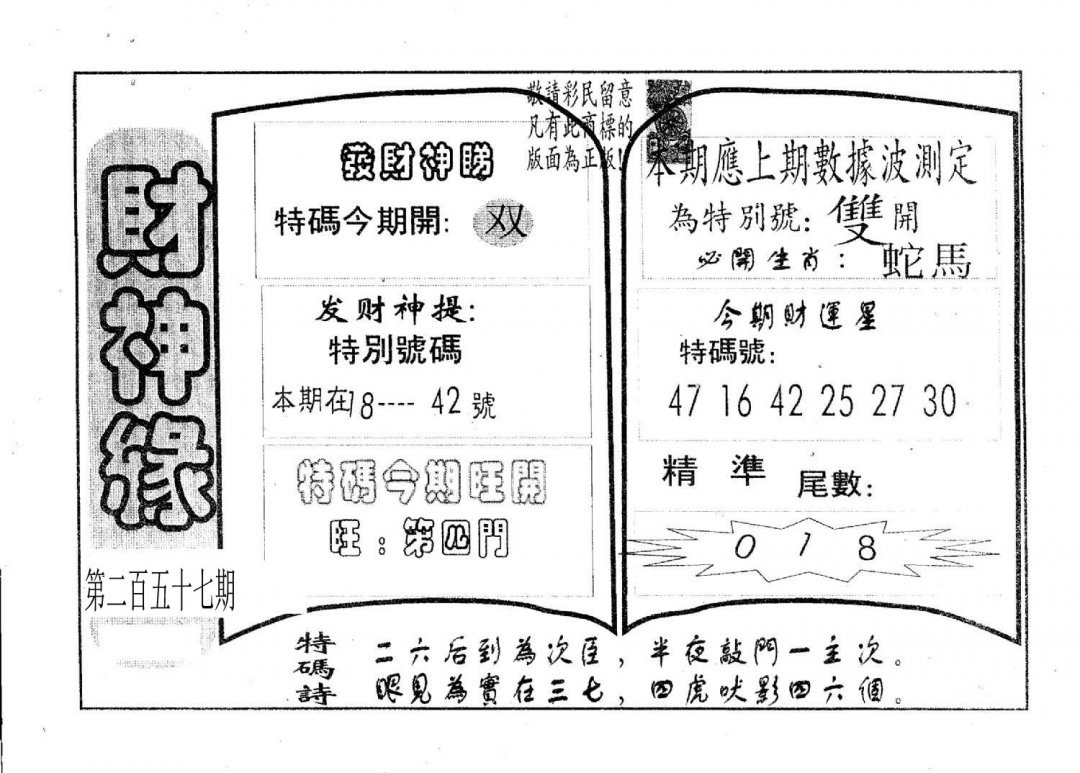 財神緣
第二百五十七期
敬請彩民留意
凡有此商標的
版面為正版!
發財神睇
特碼今期開: 双
发财神提:
特別號碼
本期在18---- 42號
特碼今期旺開
旺:第四門
本期應上期數據波測定
為特別號: 雙開
必開生肖: 蛇馬
今期財運星
特碼號:
47 16 42 25 27 30
精準 尾數:
0 1 8
特碼詩
二六后到為次臣,半夜敲門一主次。
眼見為實在三七,四虎吠影四六個。